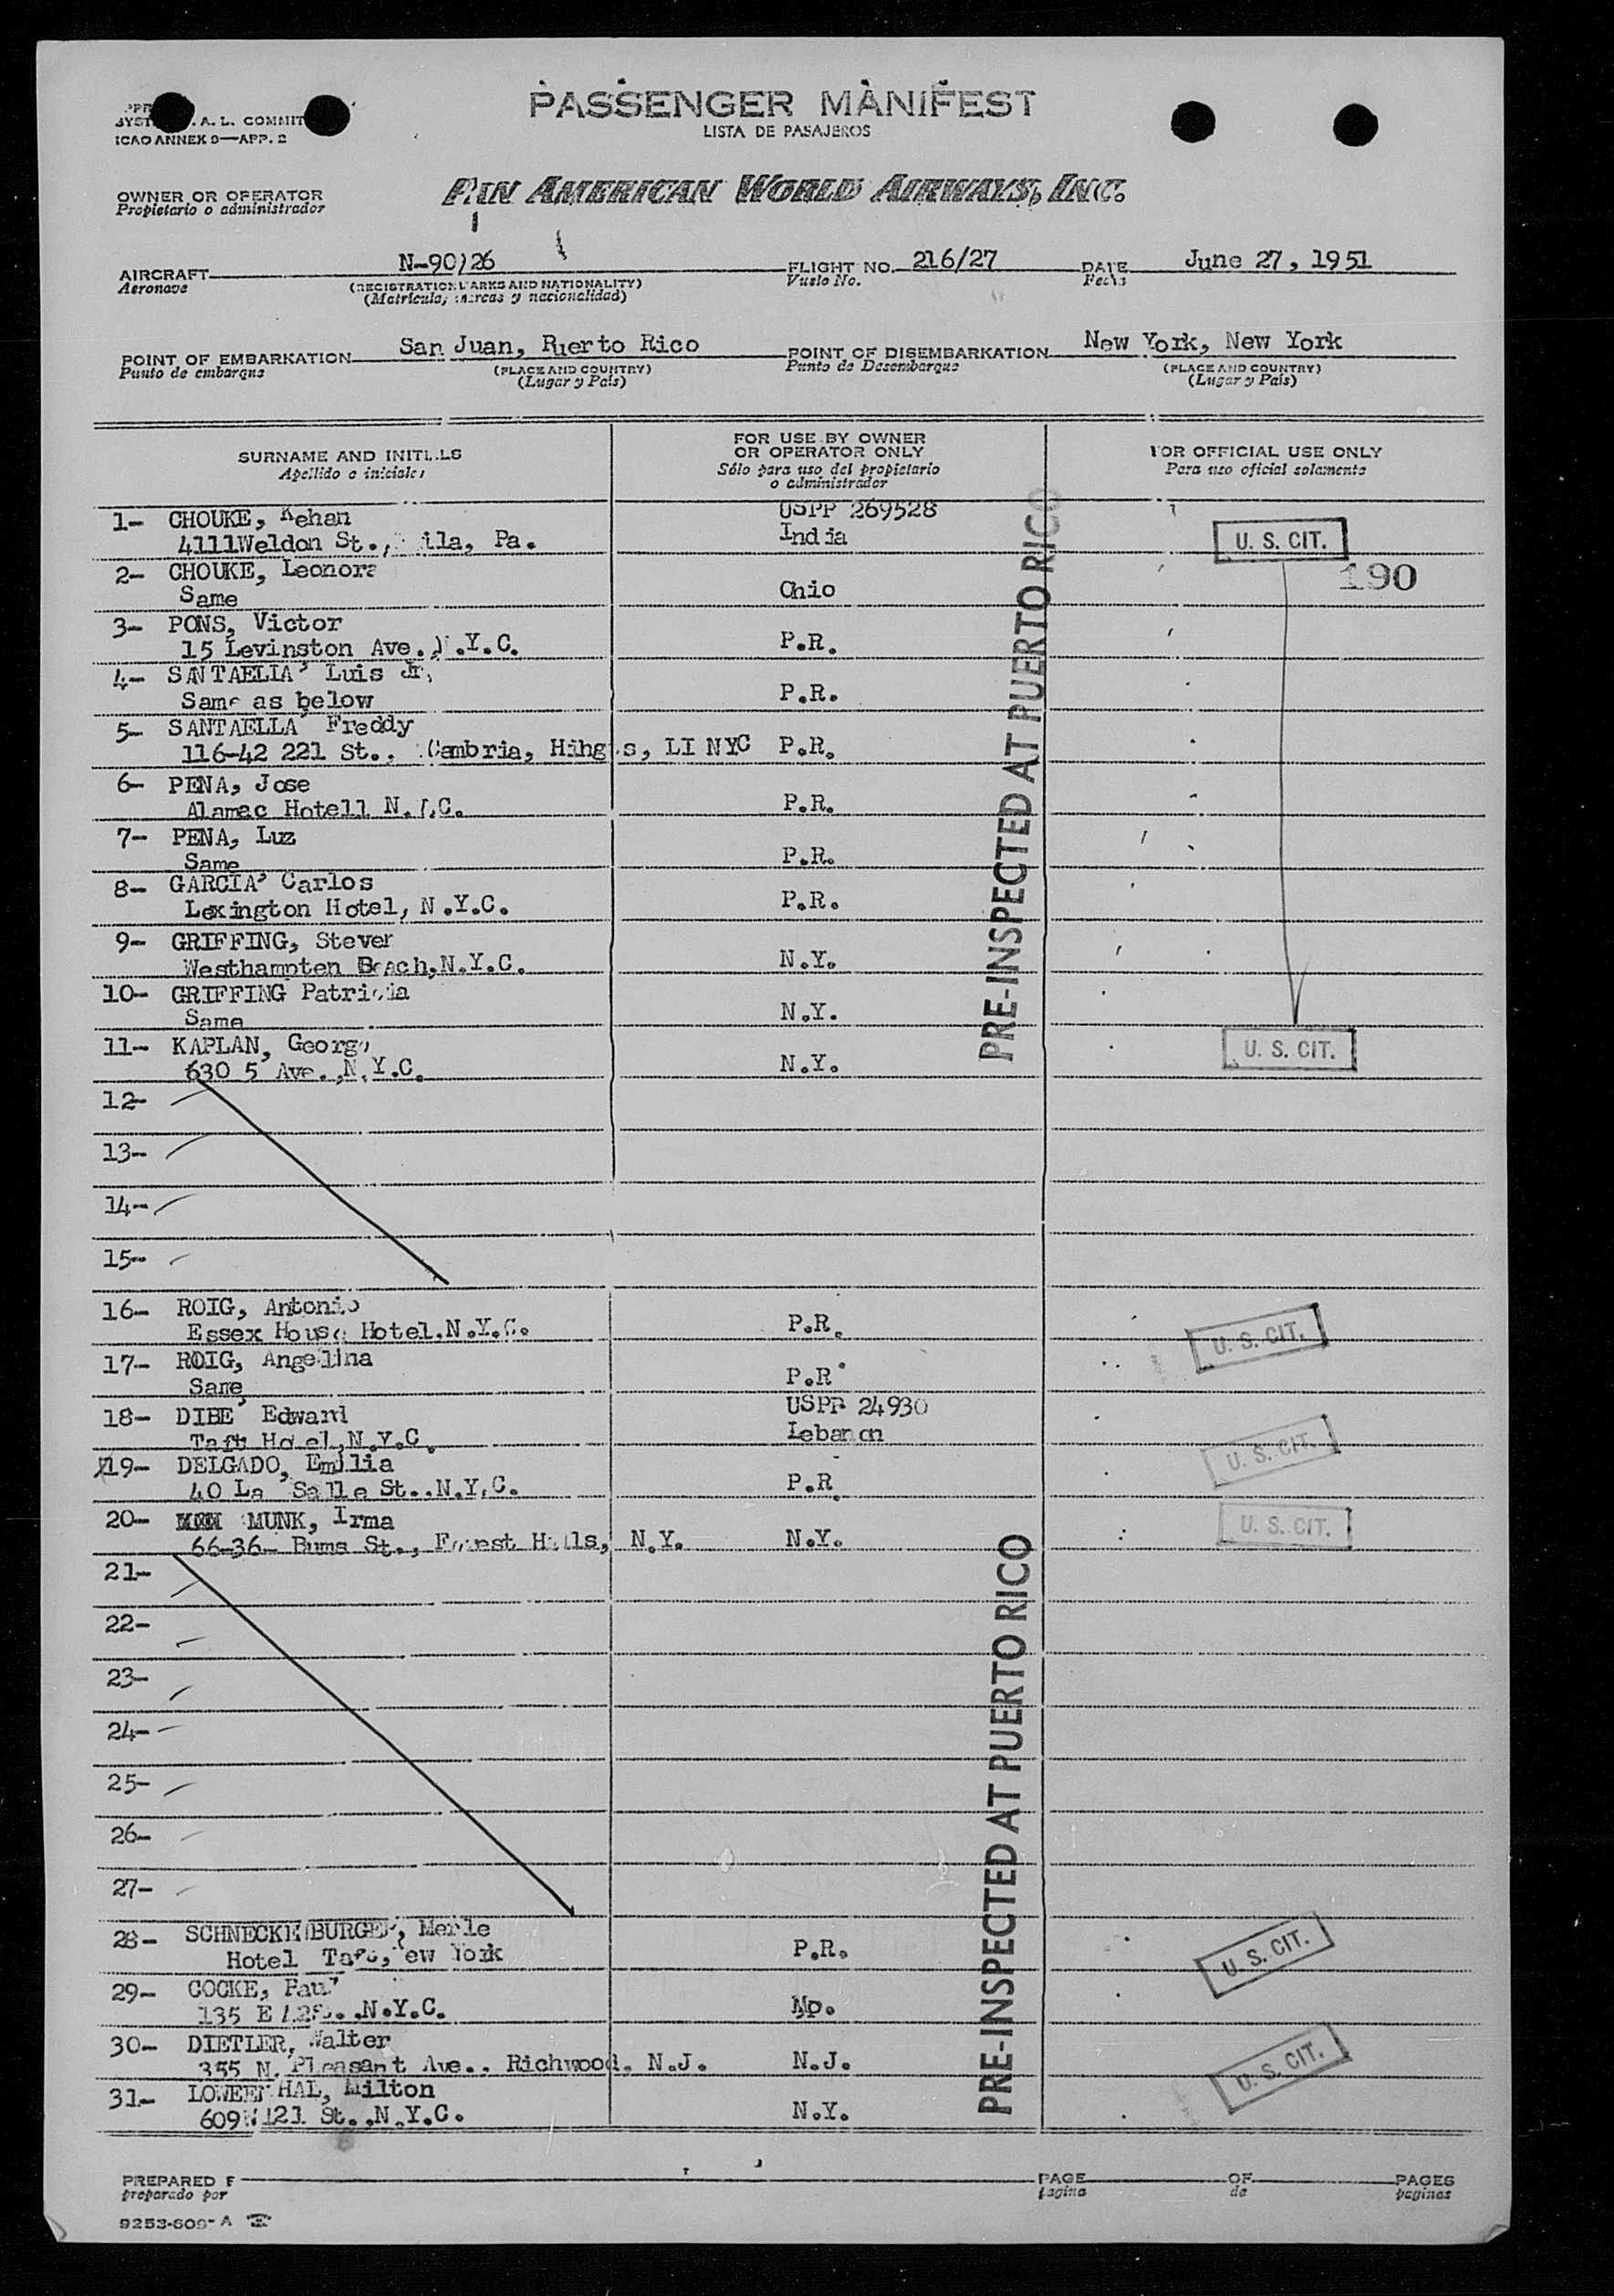 PASSENGER MANIFEST
LISTA DE PASAJEROS
A. L. COMMIT
ICAO ANNEX 9—APP. 2
OWNER OR OPERATOR
Propietario o administrador
PAN AMERICAN WORLD AIRWAYS, INC.
AIRCRAFT N-90126 FLIGHT NO. 216/27 DATE June 27, 1951
Aeronave (REGISTRATION MARKS AND NATIONALITY) Vuelo No. Fecha
(Matricula, marcas y nacionalidad)
POINT OF EMBARKATION San Juan, Puerto Rico POINT OF DISEMBARKATION New York, New York
Punto de embarque (PLACE AND COUNTRY) Punto de Desembarque (PLACE AND COUNTRY)
(Lugar y País) (Lugar y País)
SURNAME AND INITIALS FOR USE BY OWNER OR OPERATOR ONLY FOR OFFICIAL USE ONLY
Apellido e iniciales Sólo para uso del propietario o administrador Para uso oficial solamente
1- CHOUKE, Kehan USPP 269528
4111Weldon St., Pa. India U. S. CIT.
2- CHOUKE, Leonora 190
Same Ohio
3- PONS, Victor
15 Levinston Ave., N.Y.C. P.R.
4- SANTAELIA, Luis Jr.
Same as below P.R.
5- SANTAELLA, Freddy
116-42 221 St., Cambria, Hihgts, LI NYC P.R.
6- PENA, Jose
Alamac Hotell N.Y.C. P.R.
7- PENA, Luz
Same P.R.
8- GARCIA, Carlos
Lexington Hotel, N.Y.C. P.R.
9- GRIFFING, Stever
Westhampten Beach, N.Y.C. N.Y.
10- GRIFFING Patricia
Same N.Y.
11- KAPLAN, George U. S. CIT.
630 5 Ave., N.Y.C. N.Y.
12-
13-
14-
15-
16- ROIG, Antonio
Essex House Hotel.N.Y.C. P.R. U. S. CIT.
17- ROIG, Angelina
Same P.R.
18- DIBE, Edward USPP 24930
Taft Hotel, N.Y.C. Lebanon U. S. CIT.
19- DELGADO, Emilia
40 La Salle St..N.Y.C. P.R.
20- MUNK, Irma U. S. CIT.
66-36- Burns St., Forest Hills, N.Y. N.Y.
21-
22-
23-
24-
25-
26-
27-
28- SCHNECKENBURGER, Merle
Hotel Taft, New York P.R. U. S. CIT.
29- COCKE, Paul
135 E 42St. .N.Y.C. Mp.
30- DIETLER, Walter
355 N. Pleasant Ave.. Richwood, N.J. N.J. U. S. CIT.
31- LOWEENTHAL, Milton
609W 121 St., N.Y.C. N.Y.
PRE-INSPECTED AT PUERTO RICO
PRE-INSPECTED AT PUERTO RICO
PREPARED PAGE OF PAGES
preparado por pagina de paginas